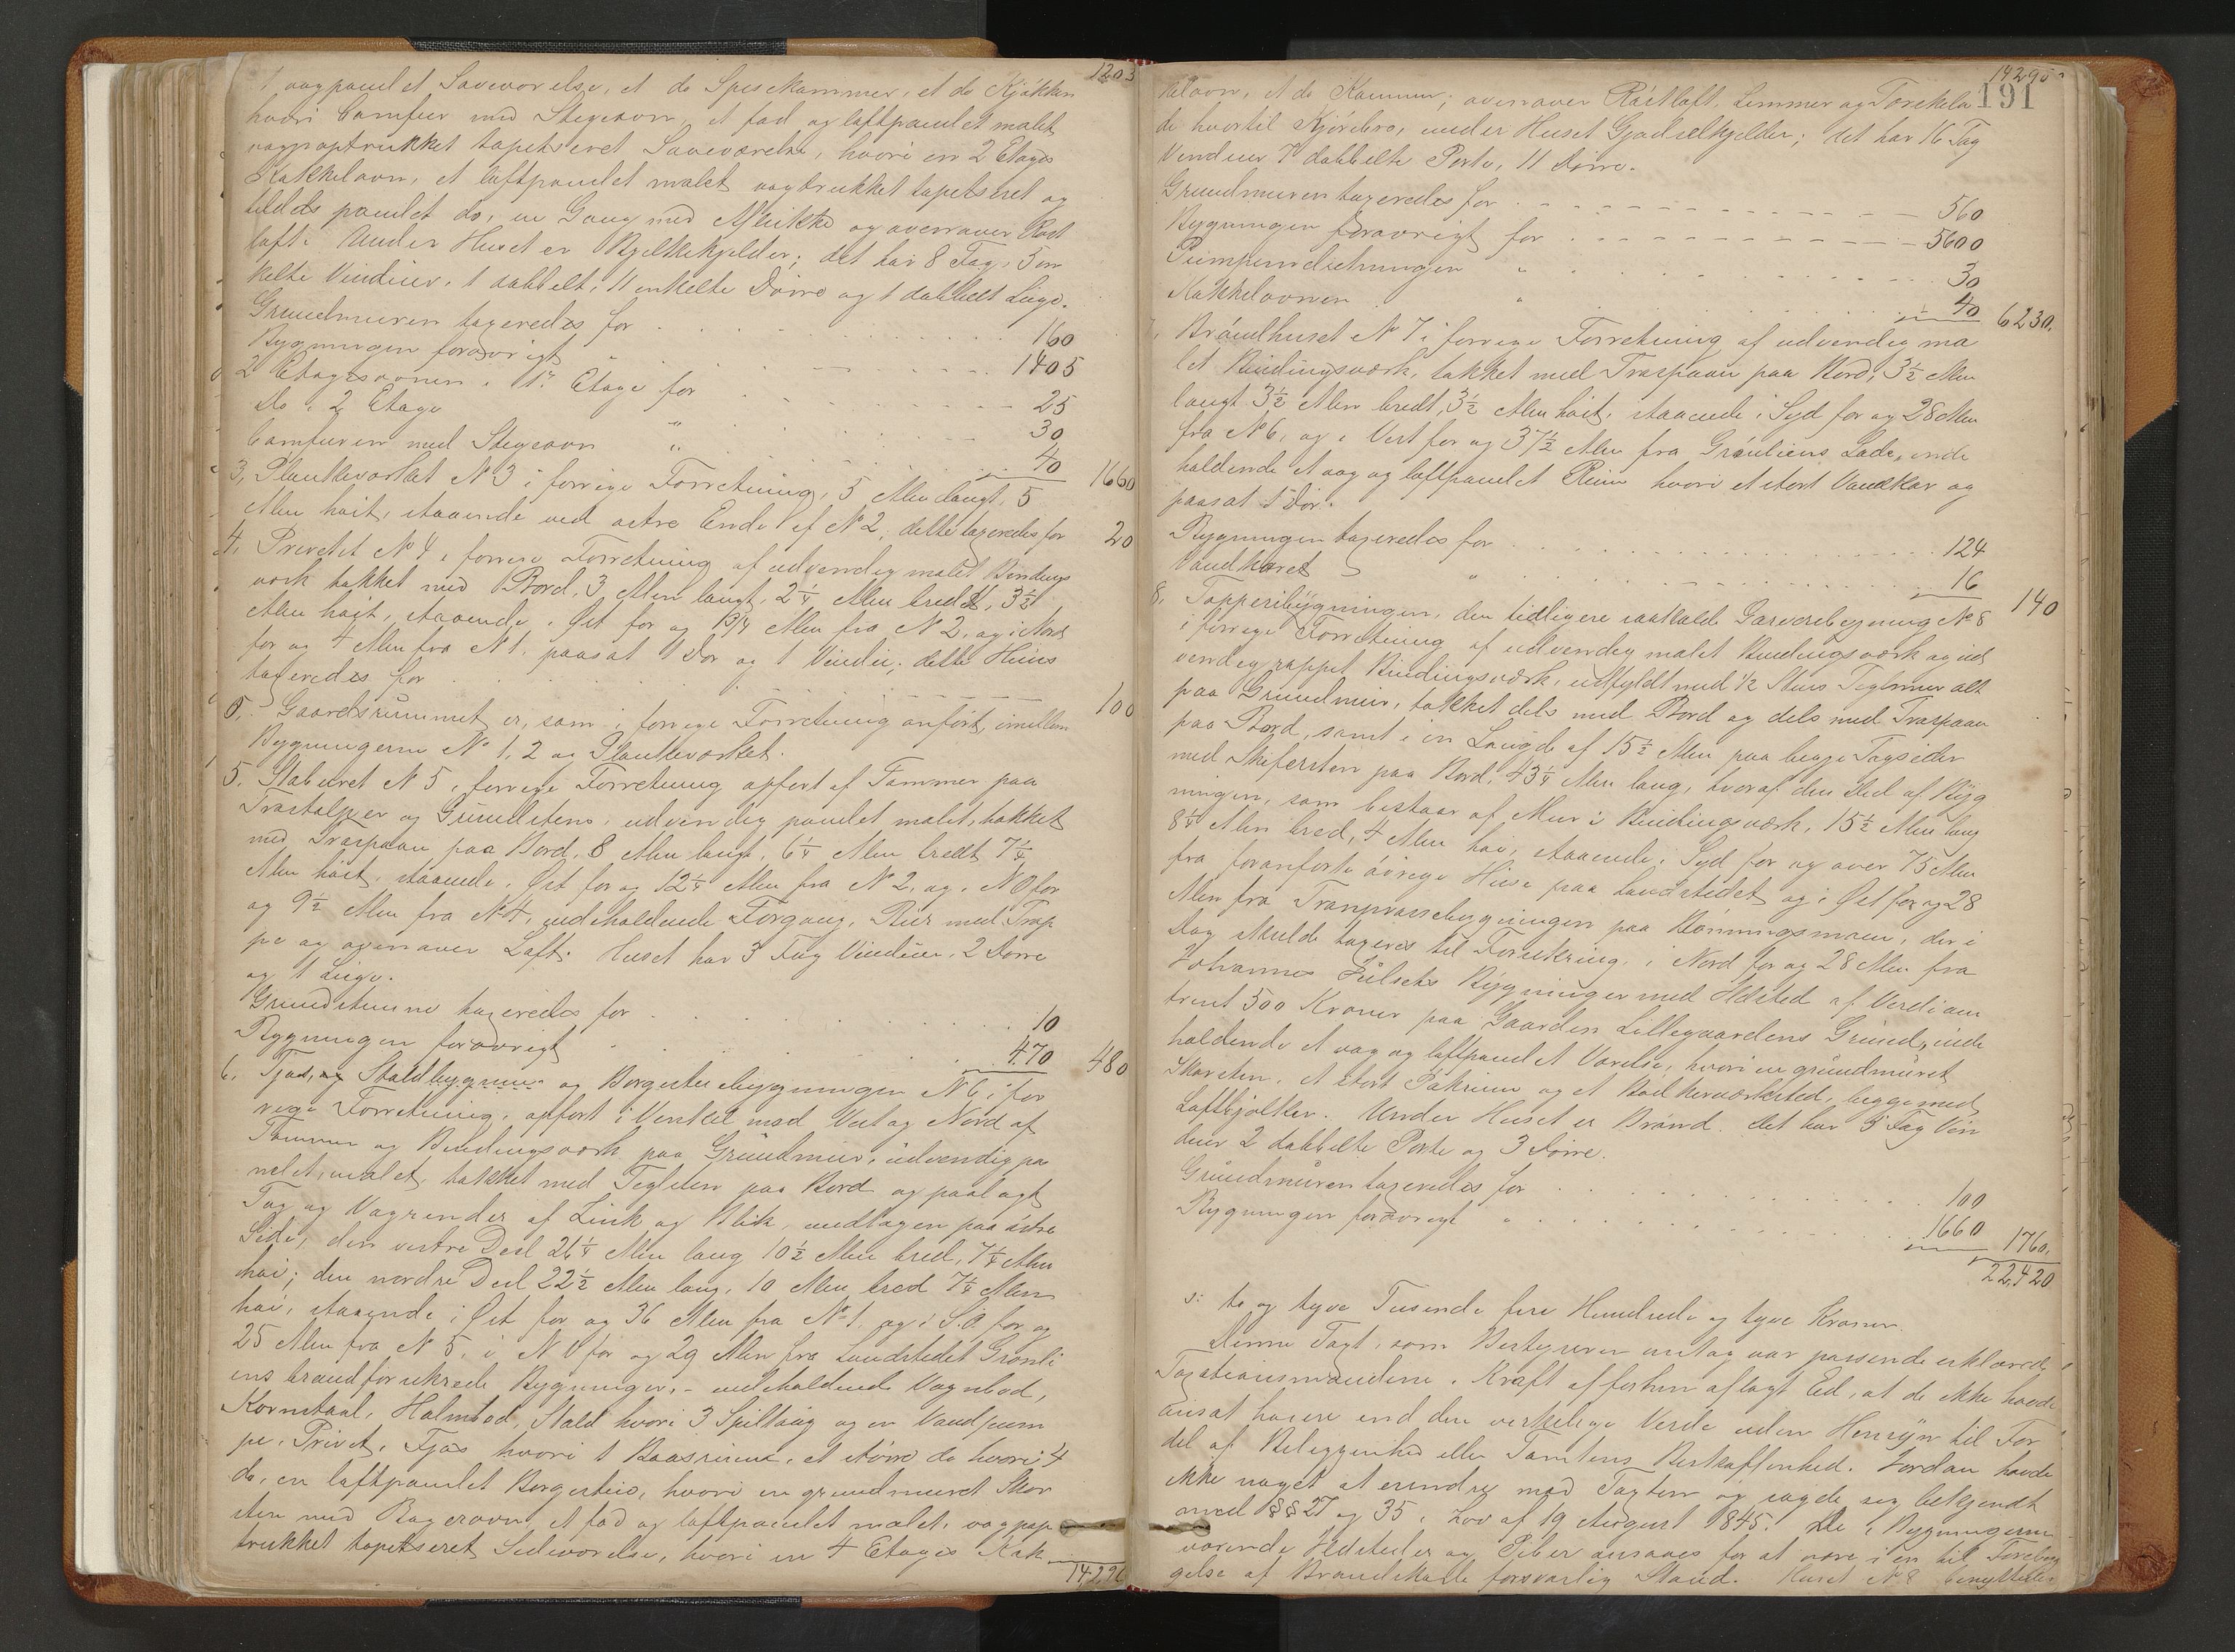 1203
1 vagpanelet Soveværelse, et do Spisekammer, et do Kjøkken
hvori Comfur med Stegeovn, et fad og loftpanelet malet
vagpaptrukket tapetseret Soveværelse, hvori en 2 Etages
Kakkelovn, et loftpanelet malet vagtrukket tapetseret og
tildels panelet do, en Gang med og ovenover Røst
loft. Under Huset er Kjelkekjelder; det har 8 Fag, 3 en
kelte Vinduer, 1 dobbelt, 11 enkelte Dørre og 1 dobbelt Luge.
Grundmuren taxeredes for 160
Bygningen forøvrigt " 1405
2 Etagesovnen i 1ste Etage for 25
Do i 2 Etage " 30
Comfuren med Stegeovn " 40 1660
3, Plankeværket N 3 i forrige Forretning, 5 Alen langt, 5
Alen høit, staaende ved østre Ende af N 2, dette taxeredes for 20
4, Privetet N 4 i forrige Forretning af udvendig malet Bindings
værk tækket med Bord, 3 Alen langt, 2 1/4 Alen bredt, 3 1/2
Alen høit, staaende i Øst for og 13/4 Alen fra N 2, og i Nord
for og 4 Alen fra N 1, paasat 1 Dør og 1 Vindu; dette Huus
taxeredes for 100
Gaardsrummet er, som i forrige Forretning anført, imellem
Bygningerne No 1, 2 og Plankeværket.
5, Staburet N 5 i forrige Forretning opført af Tømmer paa
Træstolper og Grundstene, udvendig panelet malet, tækket
med Træspaan paa Bord, 8 Alen langt, 6 1/4 Alen bredt 7 1/4
Alen høit, staaende i Øst for og 12 1/4 Alen fra N 2, og i NO for
og 9 1/2 Alen fra N 4, indeholdende Forgang, Bur med Trap
pe og ovenover Loft. Huset har 3 Fag Vinduer, 2 Dørre
og 1 Luge.
Grundstenene taxeredes for 10
Bygningen forøvrigt 470 480
6, Fjøs og Staldbygning og Borgestuebygningen N 6 i for
rige Forretning, opført i Vinkel mod Vest og Nord af
Tømmer og Bindingsværk paa Grundmur, udvendig pa
nelet, malet, tækket med Teglsten paa Bord og paalagt
Tag og Vagrender af Zink og Blik, undtagen paa østre
Side, den vestre Deel 26 1/4 Alen lang 10 1/2 Alen bred, 7 1/4 Alen
høi; den nordre Deel 22 1/2 Alen lang, 10 Alen bred 7 1/4 Alen
høi, staaende i Øst for og 36 Alen fra No 1, og i S.O for og
25 Alen fra N 5, i NO for og 29 Alen fra Landstedet Grønli
ens brandforsikrede Bygninger, - indeholdende Vognbod,
Kornstaal, Halmbod, Stald hvori 3 Spiltoug og en Vandpum
pe, Privet, Fjøs hvori 1 Baasrum, et større do hvori 4
do, en loftpanelet Borgestue, hvori en grundmuret Skor
sten med Bagerovn, et fad og loftpanelet malet, vagpap
trukket tapetseret Sideværelse, hvori en 4 Etages Kak
14290
14290
191
kelovn, et do Kammer; ovenover Røstloft, Lemmer og Torskela
de hvortil Kjørebro, under Huset Gjødselkjelder; det har 16 Fag
Vinduer 7 dobbelte Porte, 11 Dørre.
Grundmuren taxeredes for 560
Bygningen forøvrigt for 5600
Pumpeindretningen " 30
Kakkelovnen " 40 6230.
7, Brøndhuset No 7 i forrige Forretning af udvendig ma
let Bindingsværk, tækket med Træspaan paa Bord, 3 1/2 Alen
langt 3 1/2 Alen bredt, 3 1/2 Alen høit, staaende i Syd for og 28 Alen
fra N 6, og i Vest for og 37 1/2 Alen fra Grønliens Lade, inde
holdende et vag og loftpanelet Rum hvori et stort Vandkar og
paasat 1 Dør.
Bygningen taxeredes for 124
Vandkaret " 16 140
8, Tapperibygningen, den tidligere saakaldte Garveribygning No 8
i forrige Forretning af udvendig malet Bindingsværk og ud
vendig rappet Bindingsværk, udfyldt med 1/2 Stens Teglmur alt
paa Grundmur, tækket dels med Bord og dels med Træspaan
paa Bord, samt i en Længde af 15 1/2 Alen paa begge Tagsider
med Skifersten paa Bord, 43 1/4 Alen lang, hvoraf den Deel af Byg
ningen, som bestaar af Mur i Bindingsværk, 15 1/2 Alen lang
8 1/4 Alen bred, 4 Alen høi, staaende i Syd for og over 75 Alen
fra foranførte øvrige Huse paa Landstedet og i Øst for og 28
Alen fra Tranpressebygningen paa Rønningsmoen, der i
Dag skulde taxeres til Forsikring, i Nord for og 28 Alen fra
Johannes Hulseths Bygninger med Ildsted af Verdi om
trent 500 Kroner paa Gaarden Lillegaardens Grund, inde
holdende et vag og loftpanelet Værelse, hvori en grundmuret
Skorsten, et stort Pakrum og et Bødkerværksted, begge med
Loftbjelker. Under Huset er Brønd. Det har 5 Fag Vin
duer 2 dobbelte Porte og 3 Dørre.
Grundmuren taxeredes for 100
Bygningen forøvrigt " 1660 1760.
22,420
s: to og tyve Tusende fire Hundrede og tyve Kroner.
Denne Taxt, som Bestyreren antog var passende erklærede
Taxationsmændene i Kraft af forhen aflagt Eed, at de ikke havde
ansat høiere end den virkelige Verdi uden Hensyn til For
del af Beliggenhed eller Tomtens Beskaffenhed. Jordan havde
ikke noget at erindre mod Taxten og sagde sig bekjendt
med §§ 27 og 35 i Lov af 19 August 1845. De i Bygningerne
værende Ildsteder og Piber ansaaes for at være i en til Forebyg
gelse af Brandskade forsvarlig Stand. Huset No 8 benyttedes